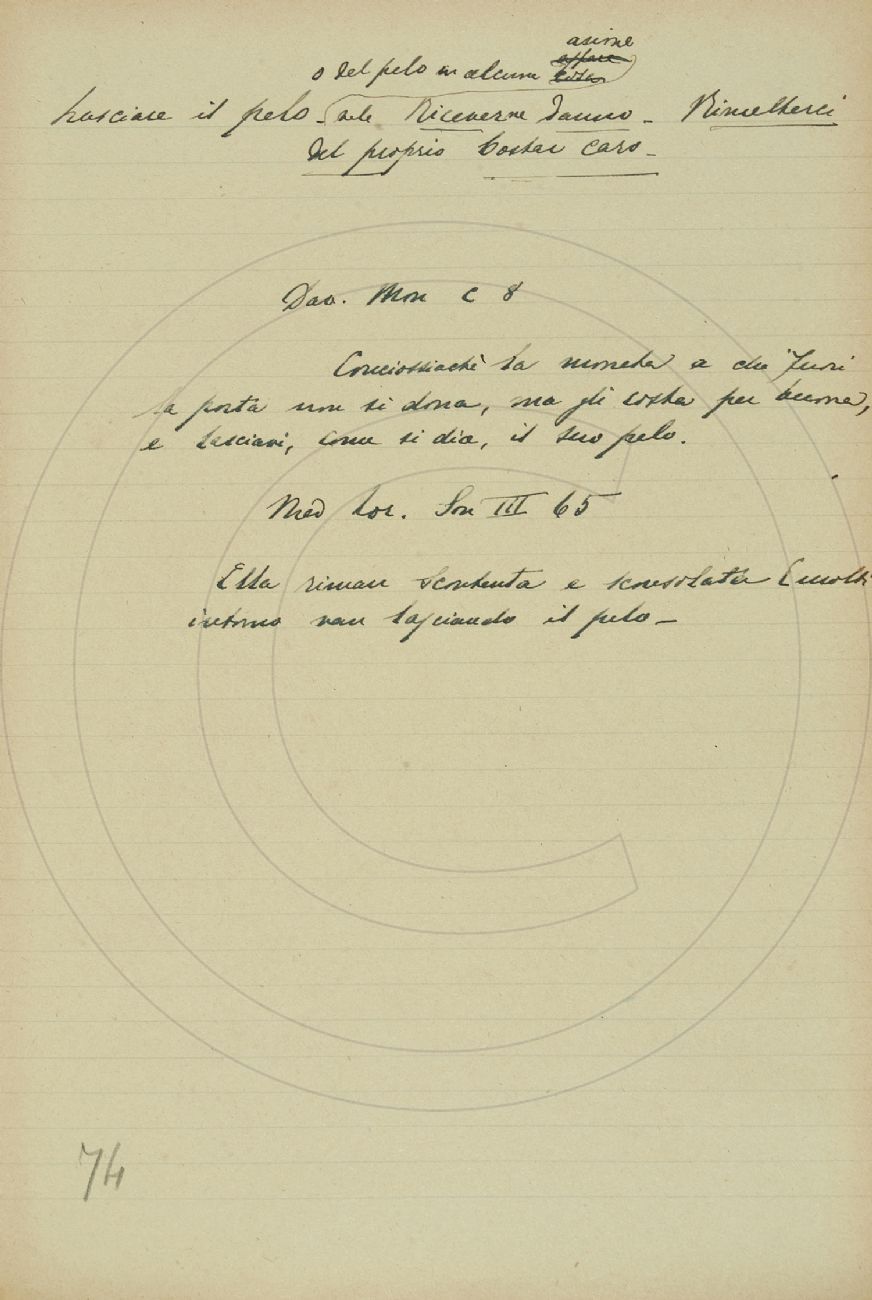 asime
o del pelo in alcuna affare cosa
Lasciare il pelo - vale Riceverne danno - Rimetterci
del proprio Costar caro -
Dav. Mon c 8
Conciossiachè la moneta a chi fuori
la porta non si dona, ma gli costa per buona,
e lasciavi, come si dice, il suo pelo.
Med Lor. Son III 65
Ella riman scontenta e sconsolata E molti
intorno van lasciando il pelo -
74